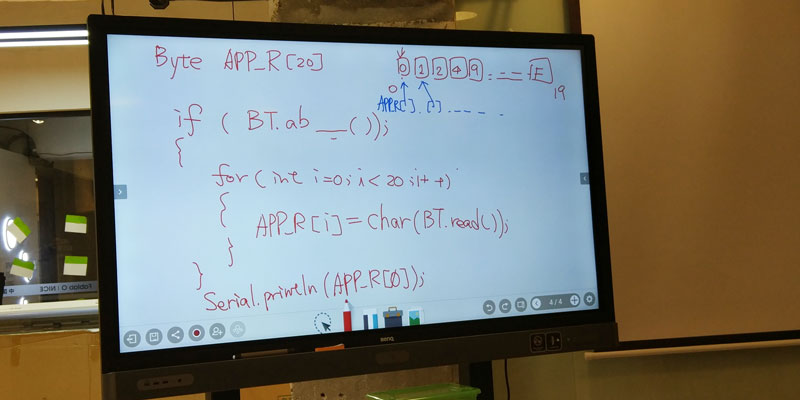 Byte APP_R[20]
0 1 2 9 E
0
19
APP_R[ ]
if ( BT.ab __());
{
for (int i=0; i<20; i++)
{
APP_R[i]=char(BT.read());
}
}
Serial.println(APP_R[0]);
4/4
BenQ